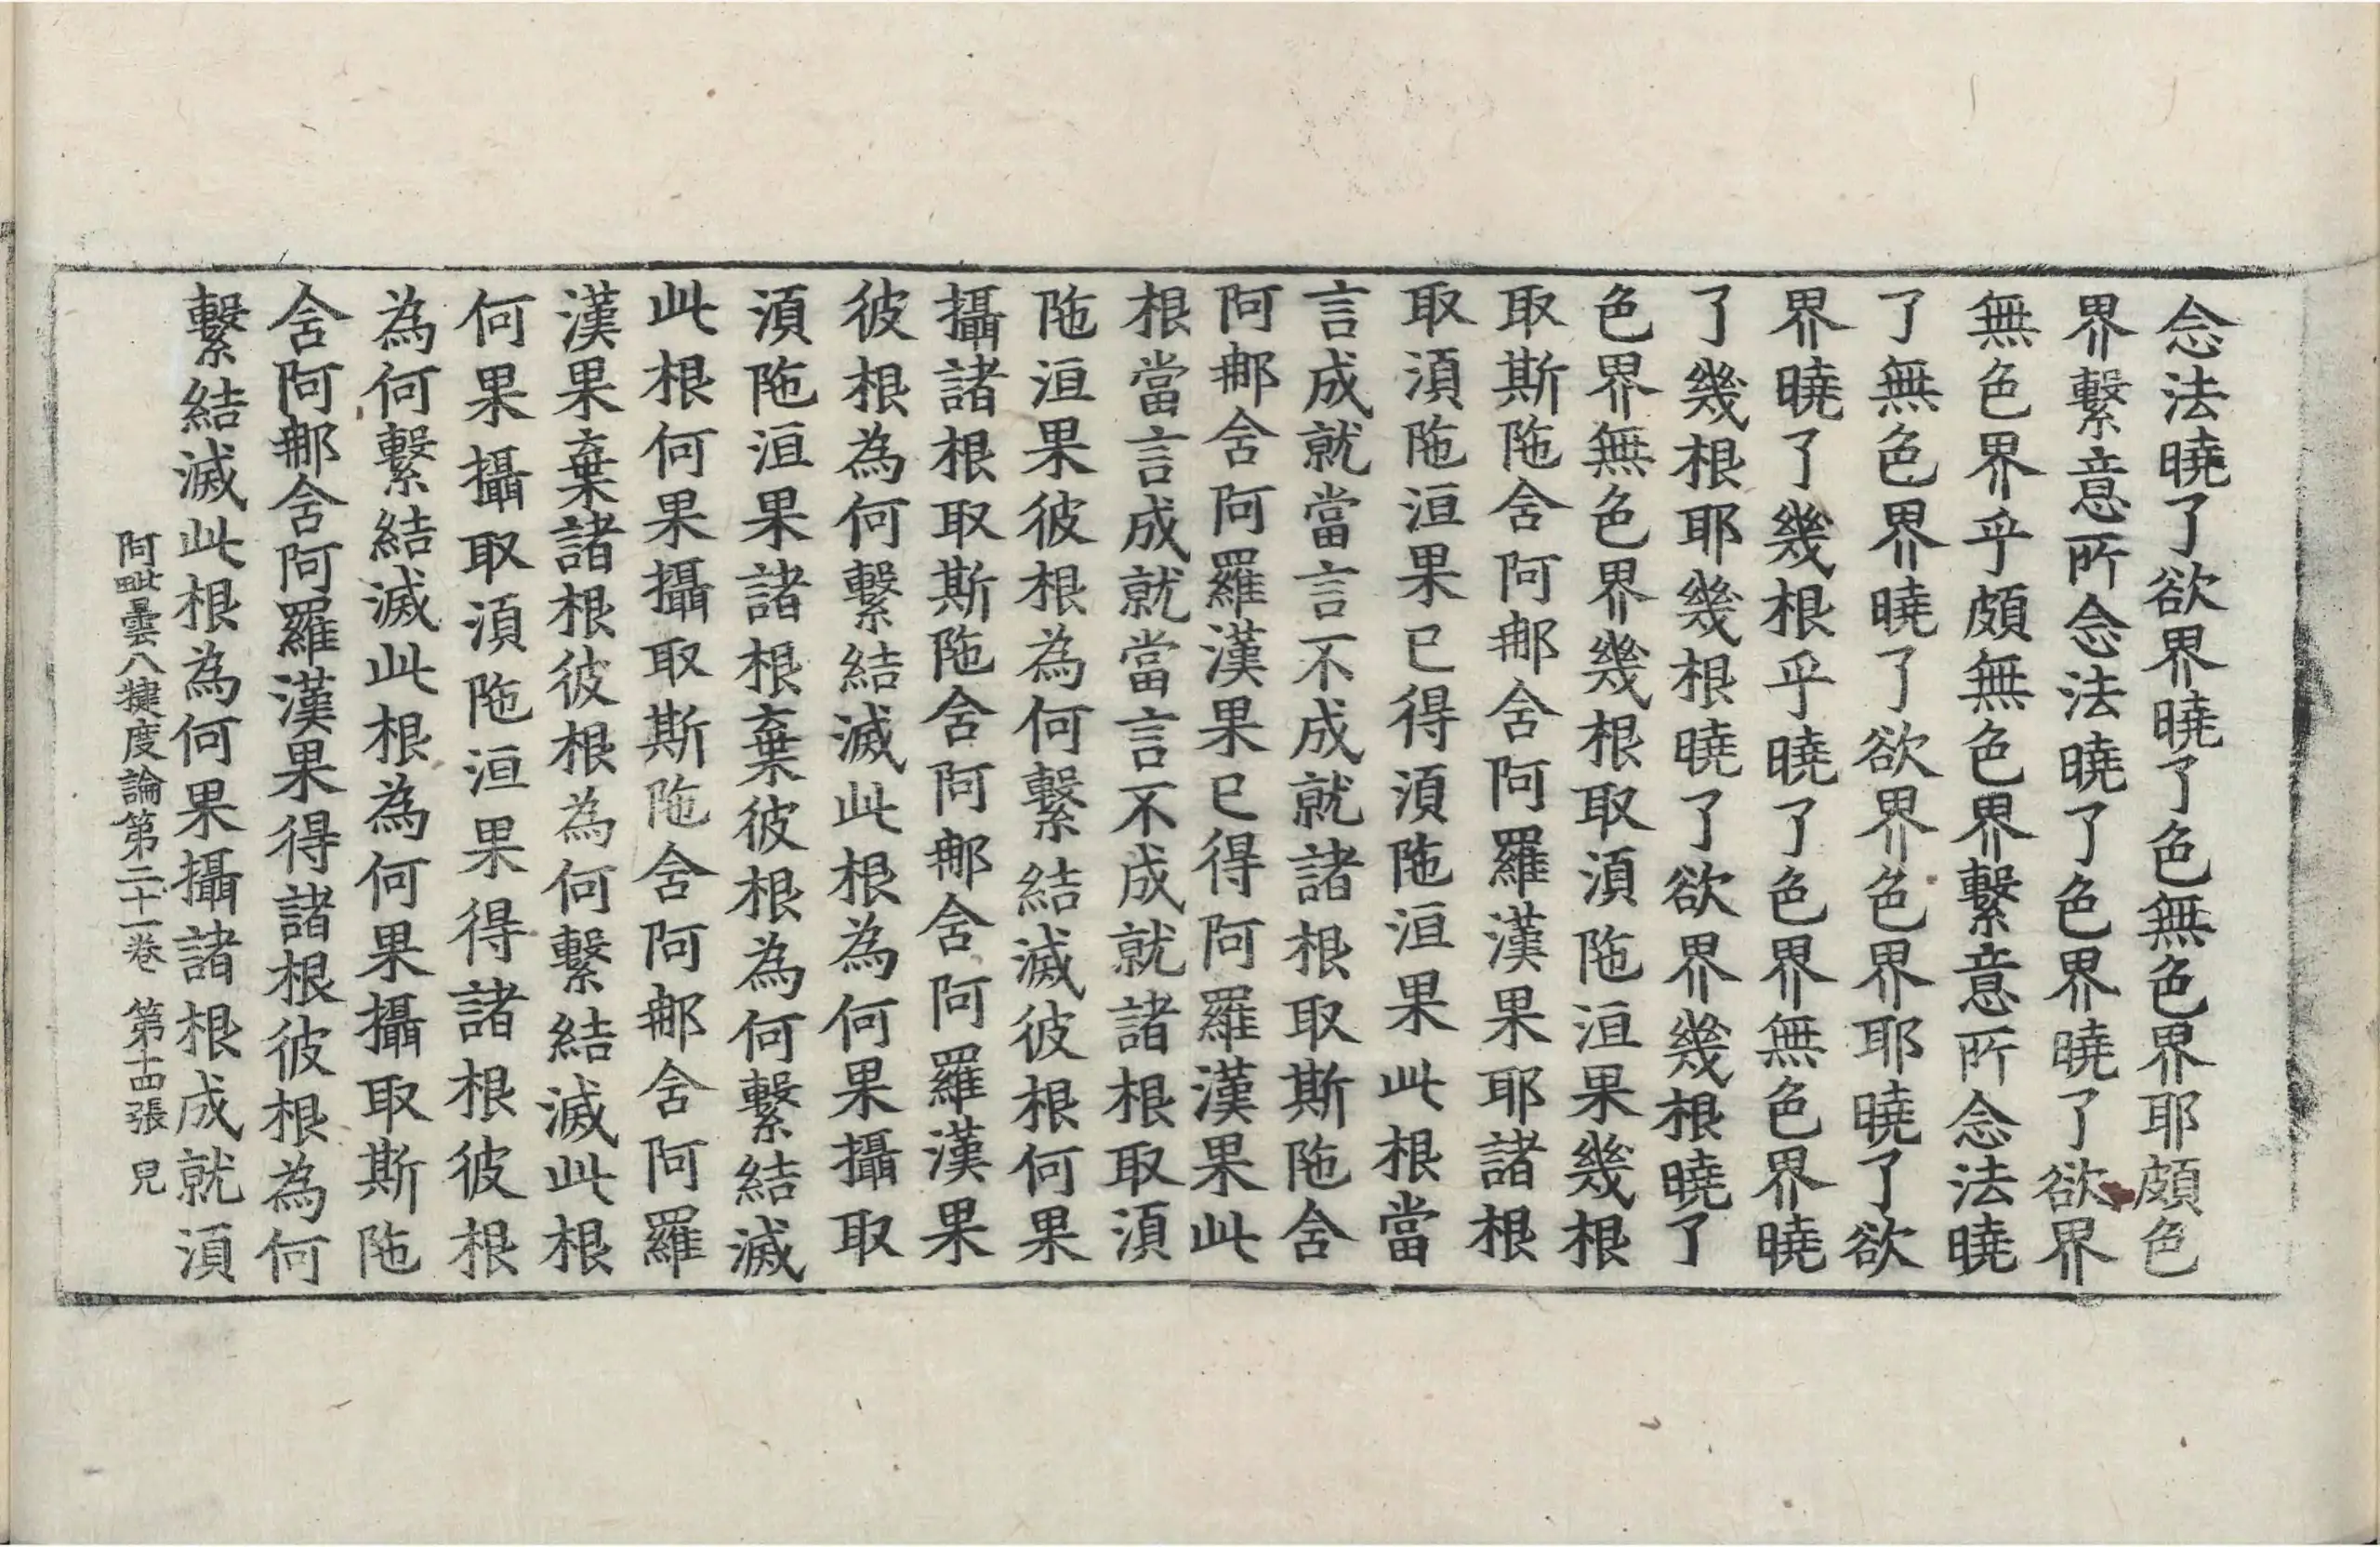 念法曉了欲界曉了色無色界耶頗色
界繫意所念法曉了色界曉了欲界
無色界乎頗無色界繫意所念法曉
了無色界曉了欲界色界耶曉了欲
界曉了幾根乎曉了色界無色界曉
了幾根耶幾根曉了欲界幾根曉了
色界無色界幾根取湏陁洹果幾根
取斯陁舍阿𨚗舍阿羅漢果耶諸根
取湏陁洹果已得湏陁洹果此根當
言成就當言不成就諸根取斯陁舍
阿𨚗舍阿羅漢果已得阿羅漢果此
根當言成就當言不成就諸根取湏
陁洹果彼根為何繫結滅彼根何果
攝諸根取斯陁舍阿𨚗舍阿羅漢果
彼根為何繫結滅此根為何果攝取
湏陁洹果諸根棄彼根為何繫結滅
此根何果攝取斯陁舍阿𨚗舍阿羅
漢果棄諸根彼根為何繫結滅此根
何果攝取湏陁洹果得諸根彼根
為何繫結滅此根為何果攝取斯陁
舍阿𨚗舍阿羅漢果得諸根彼根為何
繫結滅此根為何果攝諸根成就湏
阿毗曇八揵度論第二十一卷 第十四張 皃